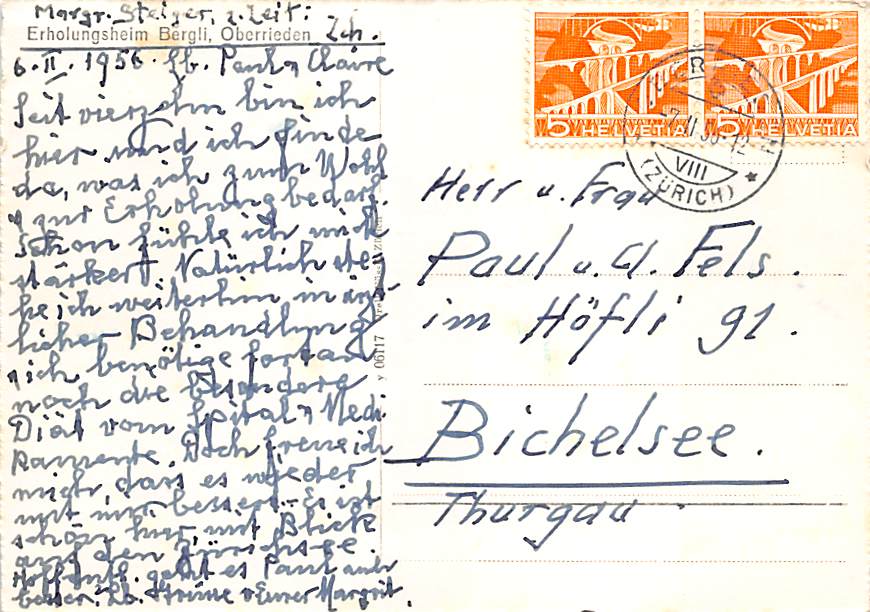 Margr. Steiger, z. Zeit:
Erholungsheim Bergli, Oberrieden Zch.
6. II. 1956. Lb. Paul u Claire
Seit vierzehn bin ich
hier und ich finde
da, was ich zum Wohl
u zur Erholung bedarf.
Schon fühle ich mich
stärker. Natürlich ste=
he ich weiterhin in ärzt
licher Behandlung
u ich benötige fortan
noch die besondere
Diät vom Spital u Medi
kamente. Doch freue ich
mich, dass es wieder
mit mir bessert. Es ist
schön hier, mit Blick
auf den Zürichsee.
Hoffentl. geht es Paul auch
besser. Lb. Grüsse v Eurer Margrit.
y 06117
5 HELVETIA
5 HELVETIA
-7. II 56-12
VIII
(ZÜRICH)
Herr u. Frau
Paul u. Cl. Fels.
im Höfli 91.
Bichelsee.
Thurgau